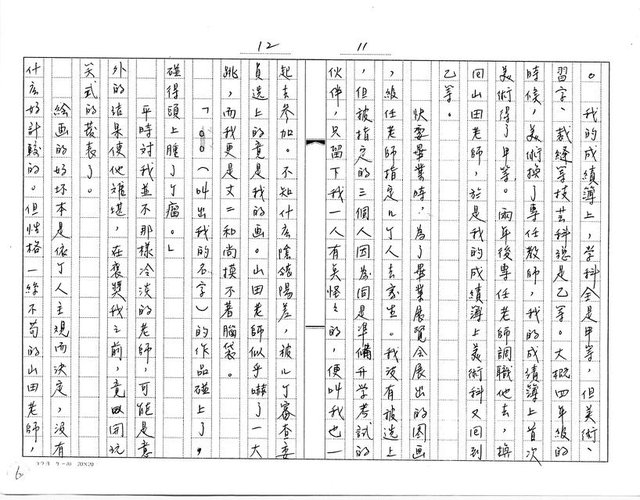 11
。 我的成績簿上，学科全是甲等，但美術、
習字、裁縫等技芸科總是乙等。大概四年級的
時候，美術換了專任教師，我的成績簿上首次
美術得了甲等。兩年後專任老師調職他去，換
回山田老師，於是我的成績簿上美術科又回到
乙等。
快要畢業時，為了畢業展覽会展出的図画
，級任老師指定几个人去寫生。我没有被选上
，但被指定的三個人因為同是準備升学考試的
伙伴，只留下我一人有 的，便叫我也一
12
起去参加。不知什么陰錯陽差，被几个審查委
員选上的竟是我的画。山田老師似乎嚇了一大
跳，而我更是丈二和尚摸不著腦袋。
「○○（叫出我的名字）的作品碰上了，
碰得頭上腫了个瘤。」
平時对我並不那樣冷淡的老師，可能是意
外的结果使他难堪，在褒奬我之前，竟以開玩
笑式的發表了。
絵画的好坏本是依个人主観而決定，没有
什么好計較的。但性格一絲不苟的山田老師，
20X20
6